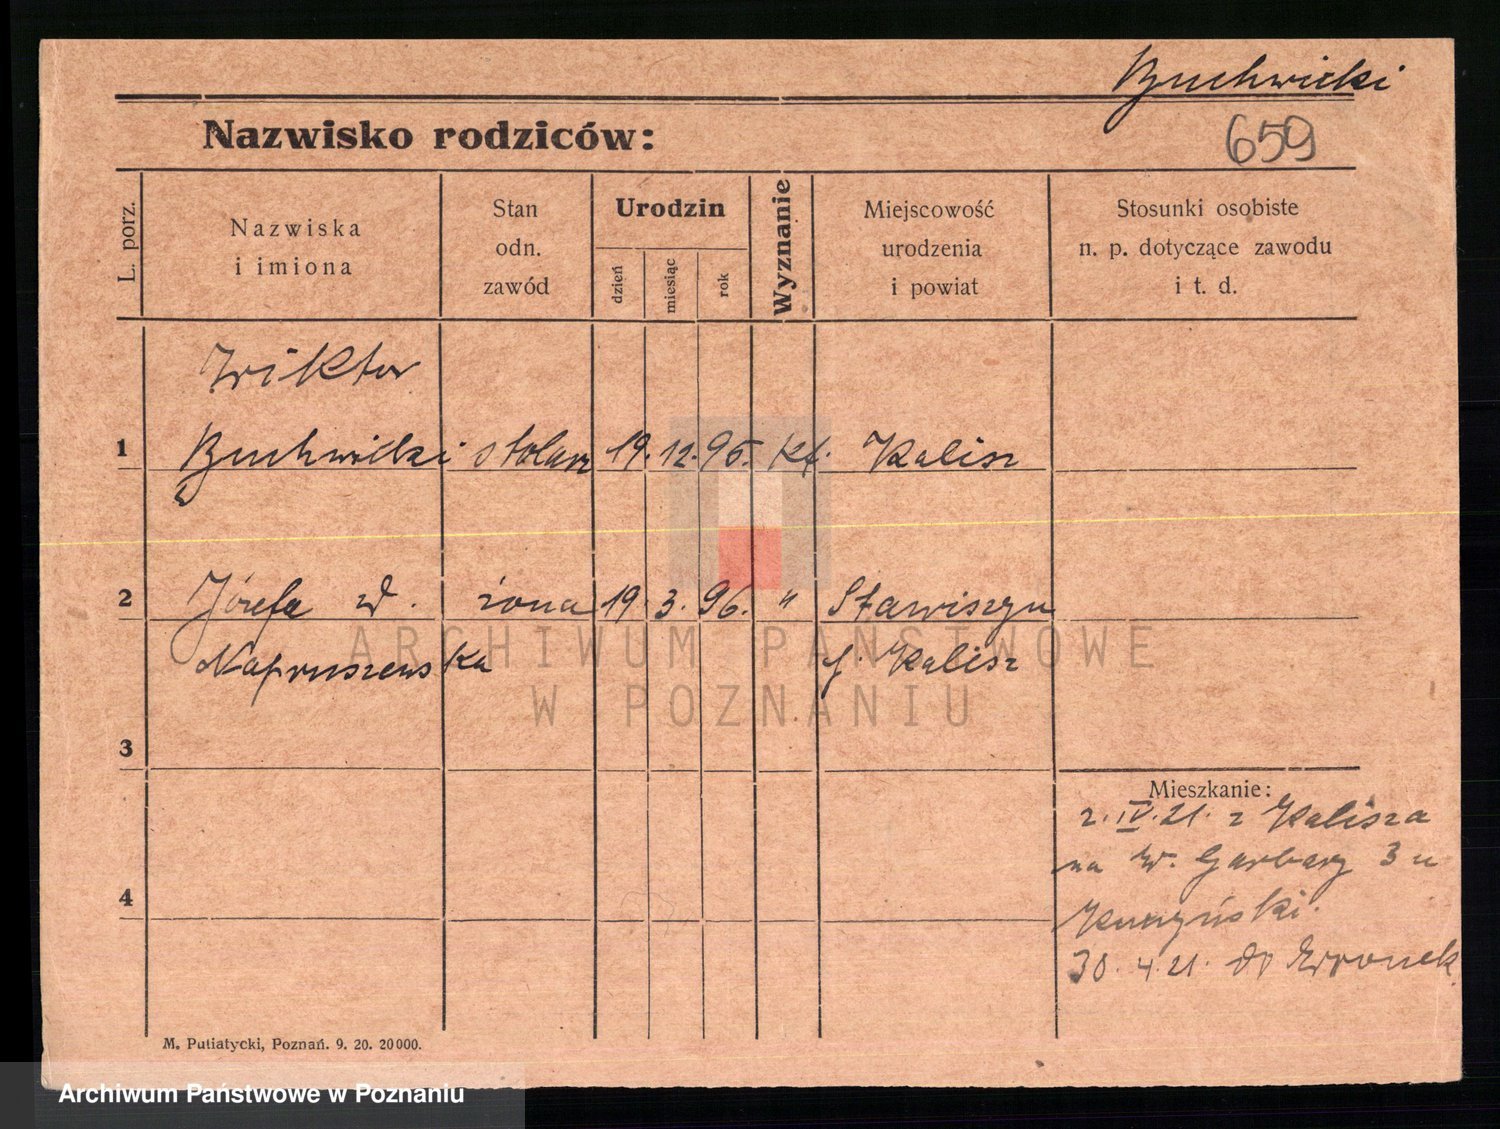 Buchwicki
Nazwisko rodziców:
659
L. porz.
Nazwiska
i imiona
Stan
odn.
zawód
Urodzin
dzień
miesiąc
rok
Wyznanie
Miejscowość
urodzenia
i powiat
Stosunki osobiste
n. p. dotyczące zawodu
i t. d.
Wiktor
1 Buchwicki stolarz 19. 12. 95. Kt. Kalisz
2 Józefa zd. żona 19 3. 96. " Stawiszyn
Napruszewska Kalisz
3
Mieszkanie:
2. IV. 21. z Kalisza
na W. Garbary 3 u
4
30. 4. 21. do Wronek
M. Putiatycki, Poznań. 9. 20. 20000.
ARCHIWUM PAŃSTWOWE
W POZNANIU
Archiwum Państwowe w Poznaniu